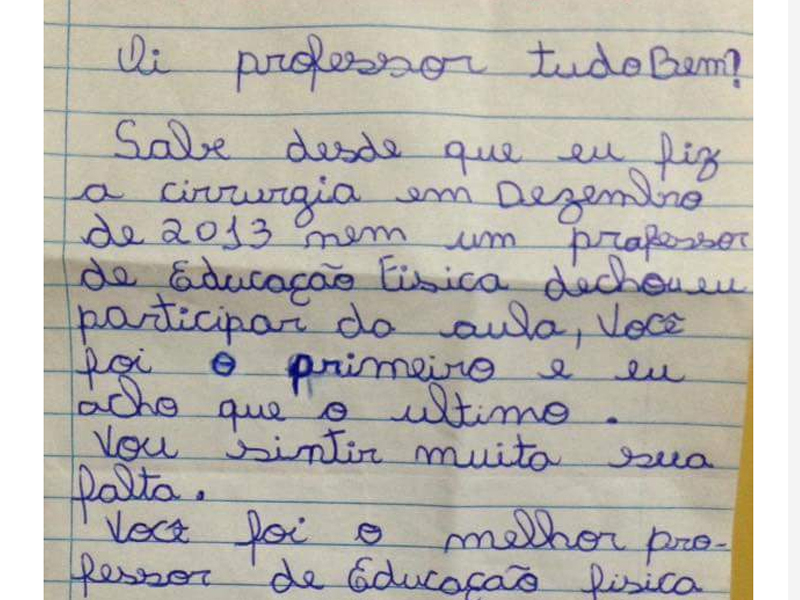 Oi professor tudo Bem?
Sabe desde que eu fiz
a cirrurgia em Dezembro
de 2013 nem um professor
de Educação Fisica dechou eu
participar da aula, Você
foi o primeiro e eu
acho que o ultimo.
Vou sintir muita sua
falta.
Você foi o melhor pro-
fessor de Educação fisica